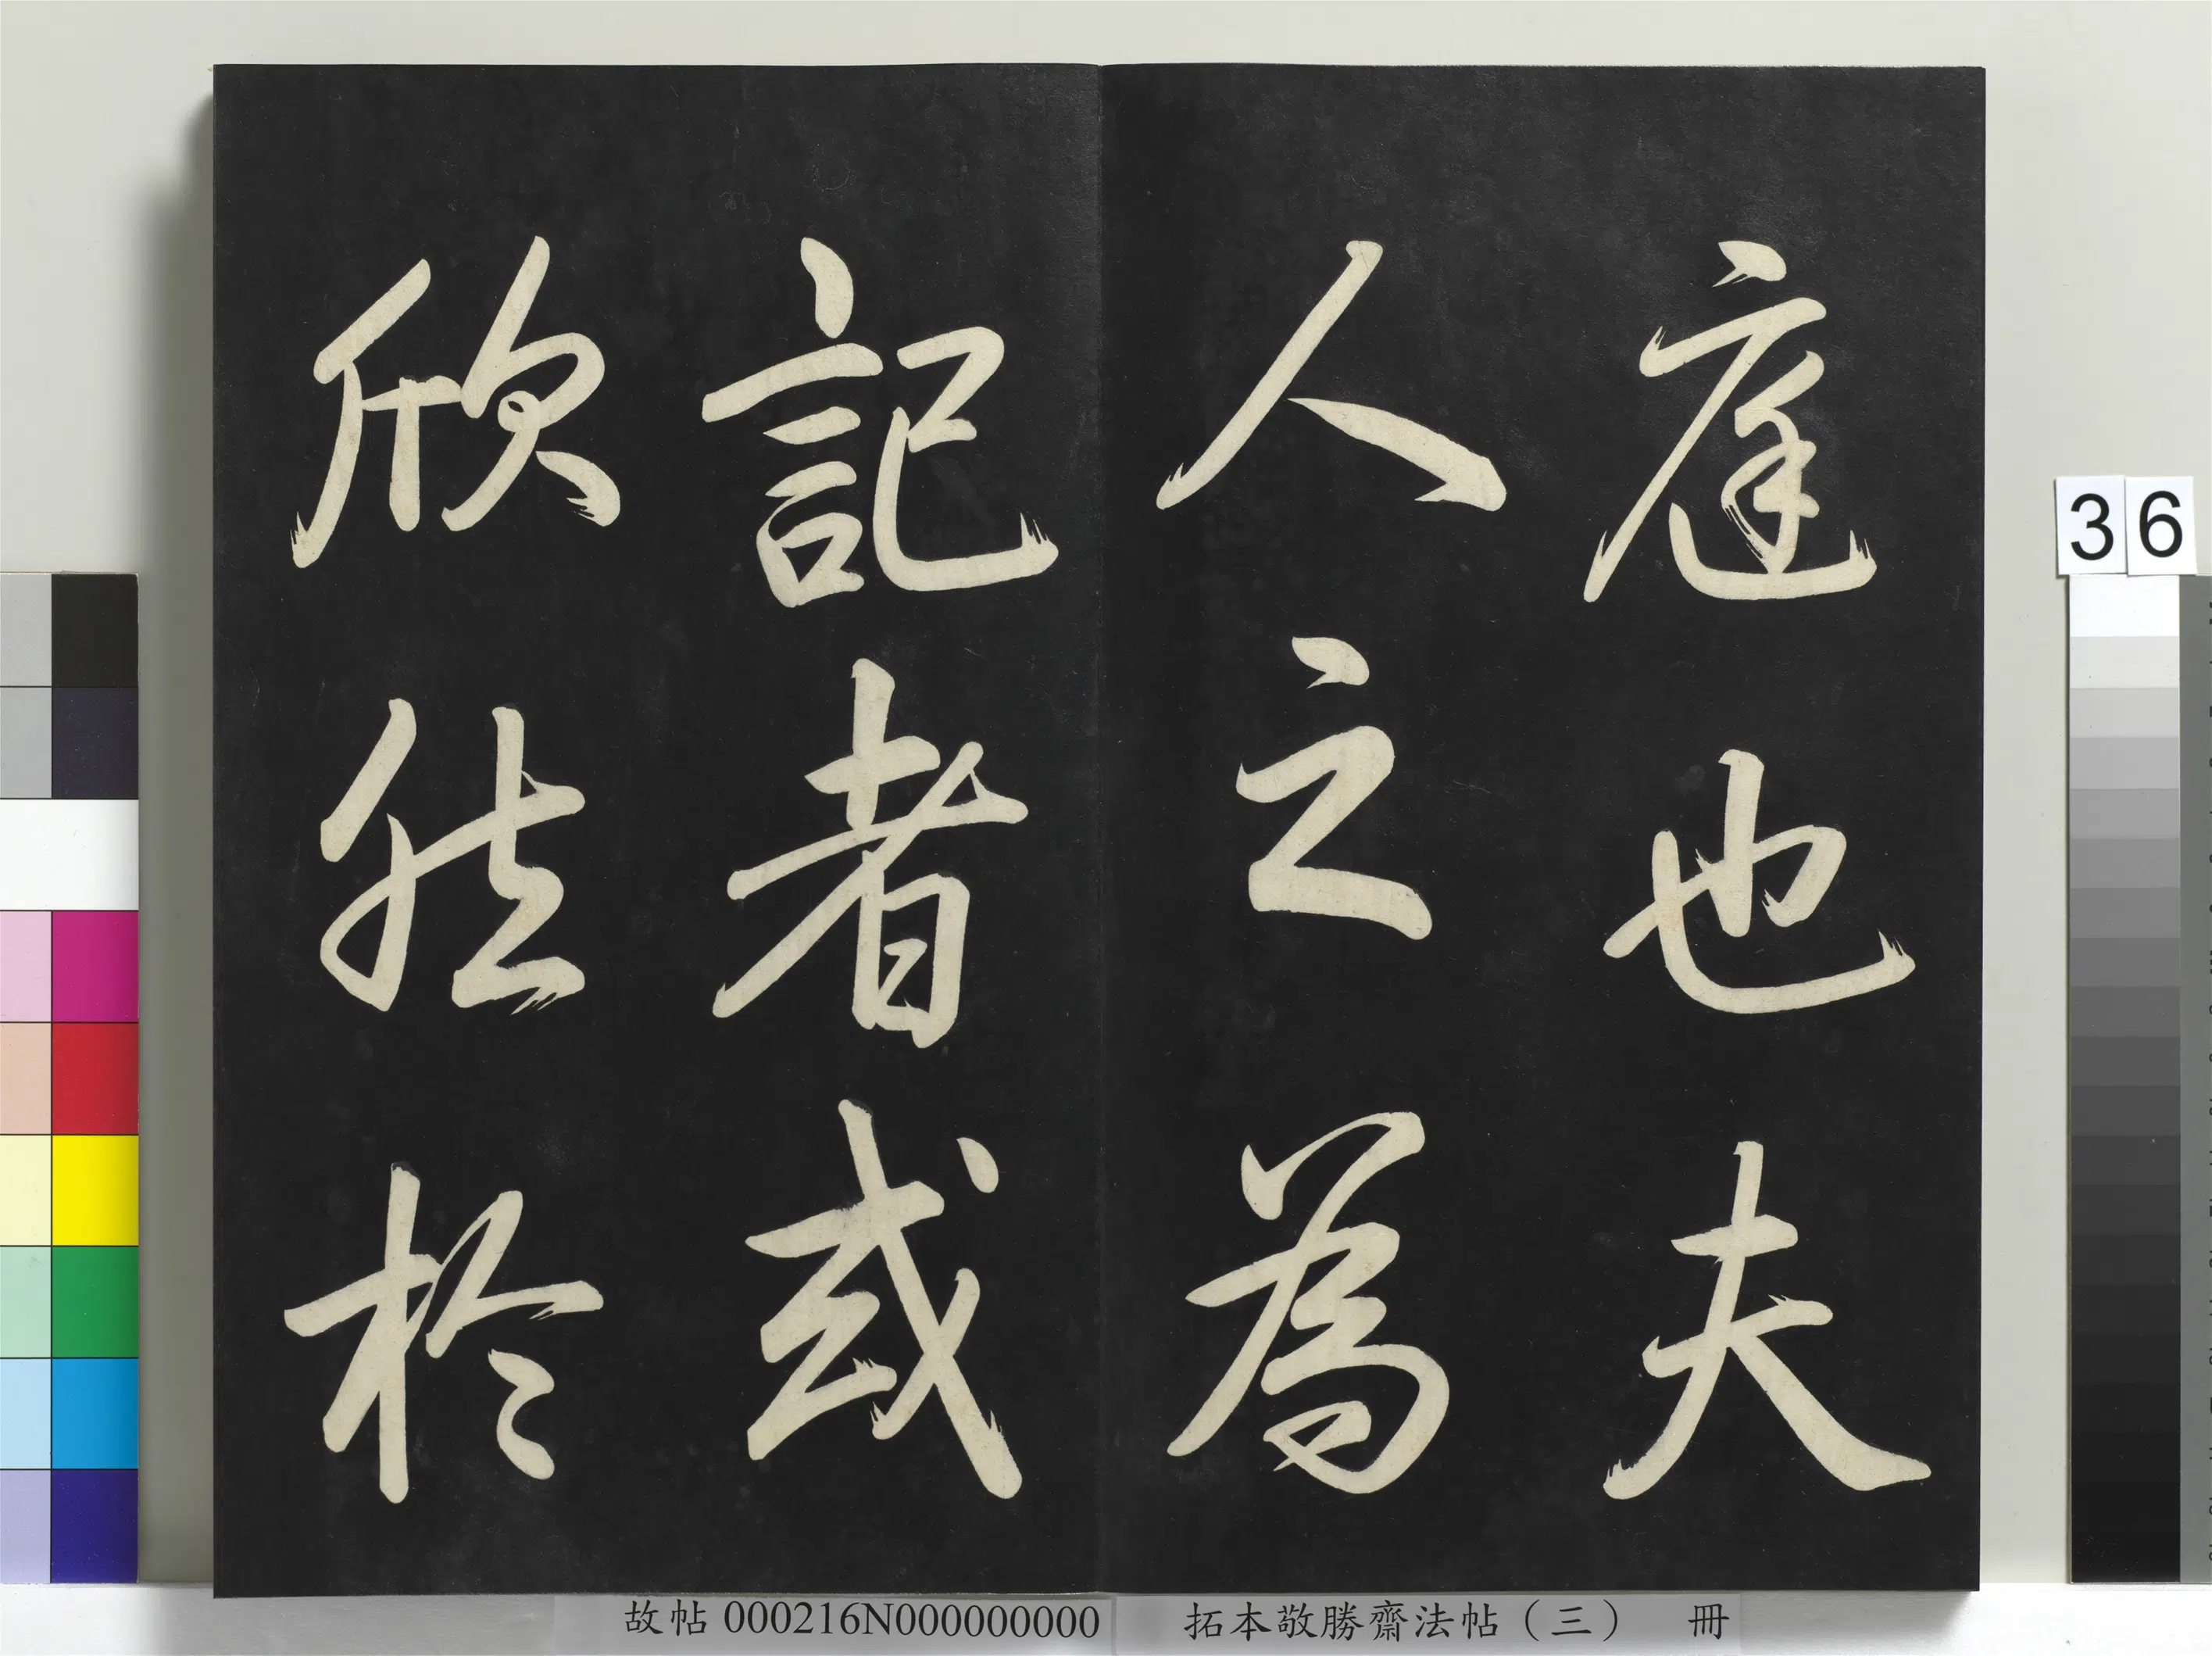 庭也夫
人之為
記者或
欣然於
36
故帖000216N000000000
拓本敬勝齋法帖（三） 冊